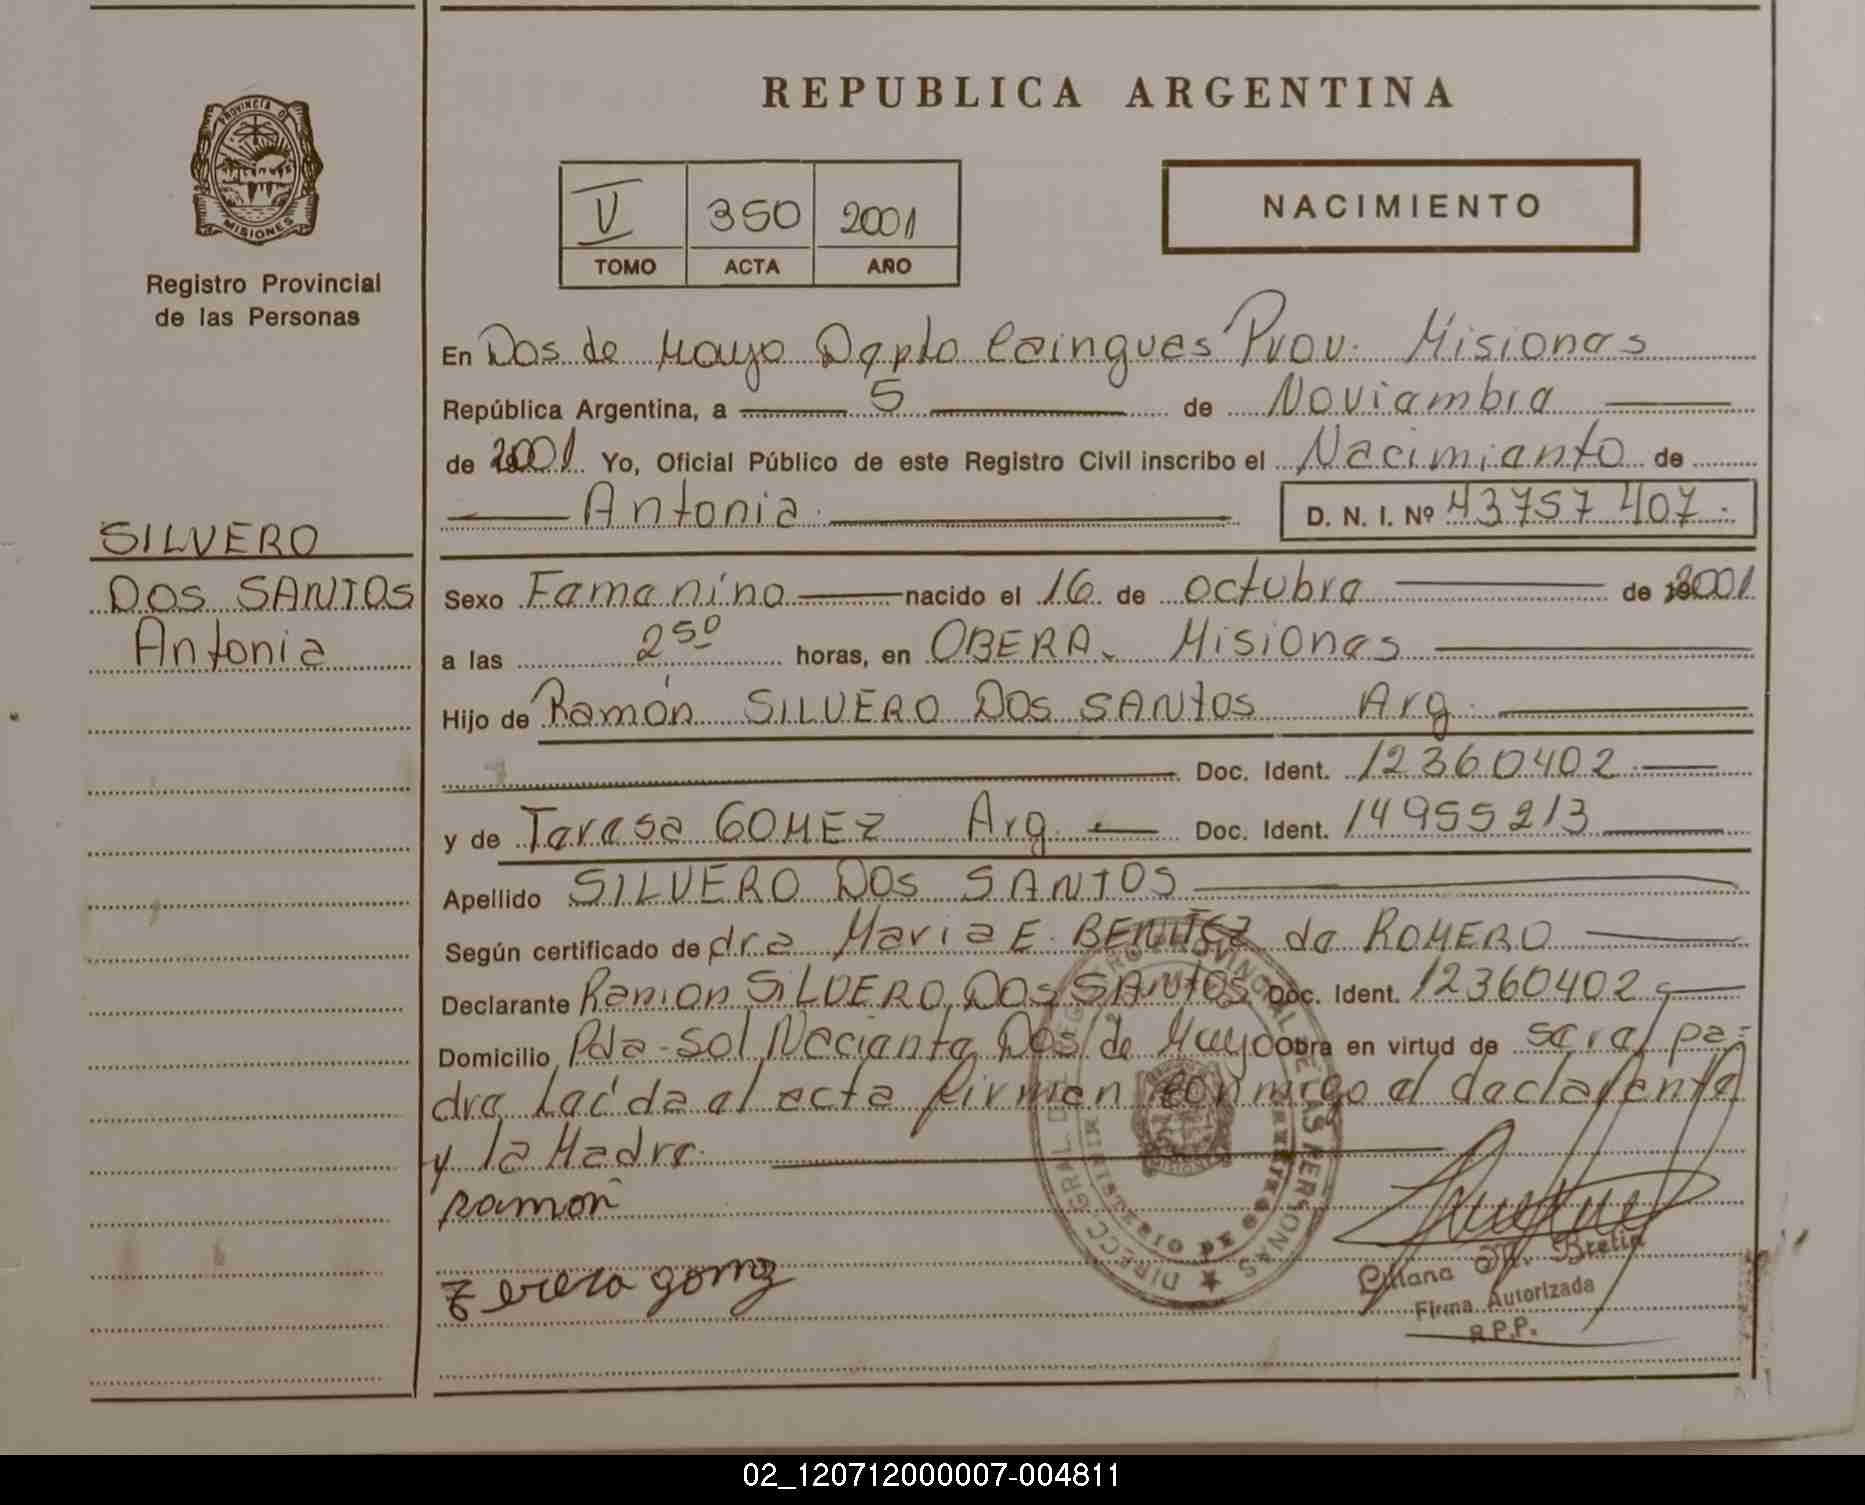 REPUBLICA ARGENTINA
PROVINCIA DE
MISIONES
Registro Provincial
de las Personas
V 350 2001
TOMO ACTA AÑO
NACIMIENTO
En Dos de Mayo Depto Cainguas Prov. Misiones
República Argentina, a 5 de Noviembre
de 2001 Yo, Oficial Público de este Registro Civil inscribo el Nacimiento de
Antonia. D. N. I. Nº 43757407.
SILVERO
DOS SANTOS
Antonia
Sexo Femenino nacido el 16 de octubre de 2001
a las 2⁵⁰ horas, en OBERA. Misiones
Hijo de Ramón SILVERO DOS SANTOS Arg.
Doc. Ident. 12360402
y de Teresa GOMEZ Arg. Doc. Ident. 14955213
Apellido SILVERO DOS SANTOS
Según certificado de dra Maria E. BENITEZ de ROMERO
Declarante Ramon SILVERO DOS SANTOS Doc. Ident. 12360402
Domicilio Pda-Sol Naciente Dos de Mayo obra en virtud de ser el pa-
dre Leída el acta firman conmigo el declarante
y la Madre.
Ramon
Terera gomz
DIRECC GRAL DEL REGISTRO PROVINCIAL DE LAS PERSONAS
MINISTERIO DE GOBIERNO
MISIONES
Firma Autorizada
R.P.P.
02_120712000007-004811